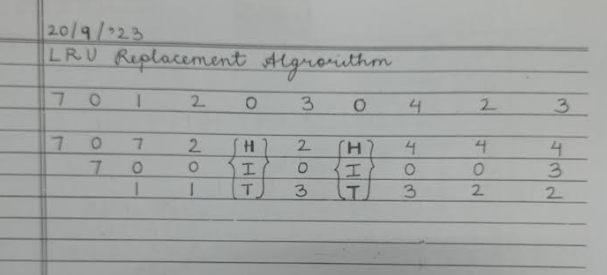 20/9/'23
LRU Replacement Algrorithm
7 0 1 2 0 3 0 4 2 3
7 0 7 2 H 2 H 4 4 4
7 0 0 I 0 I 0 0 3
1 1 T 3 T 3 2 2